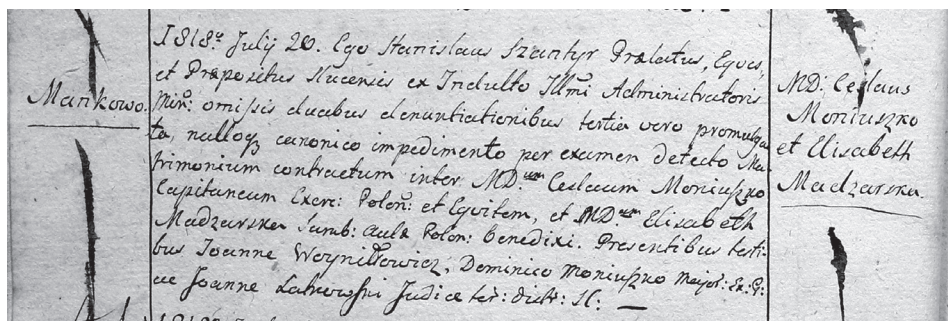 Mańkowo.
1818º July 20. Ego Stanislaus Szantyr Prælatus, Eques,
et Præpositus Slucensis ex Indulto Illmi Administratoris
Min: omissis duabus denuntiationibus tertia vero promulga
ta, nulloq3 canonico impedimento per examen detecto Ma-
trimonium contractum inter MD.um Ceslaum Moniuszko
Capitaneum Exerc: Polon: et Equitem, et MD.am Elisabeth
Madzarska Samb: aulæ Polon: benedixi. Presentibus testi-
bus Joanne Woyniłłowicz, Dominico Moniuszko Major: Ex: G:
ac Joanne Judice ter: distr: Sl:
MD: Ceslaus
Moniuszko
et Elisabeth
Madzarska.